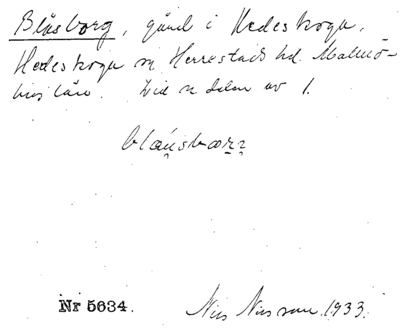 Blåsborg, gård i Hedeskoga,
Hedeskoga sn Herrestads hd. Malmö-
hus län. Vid n delen av 1.
Nr 5634. Nils Nilsson. 1933.